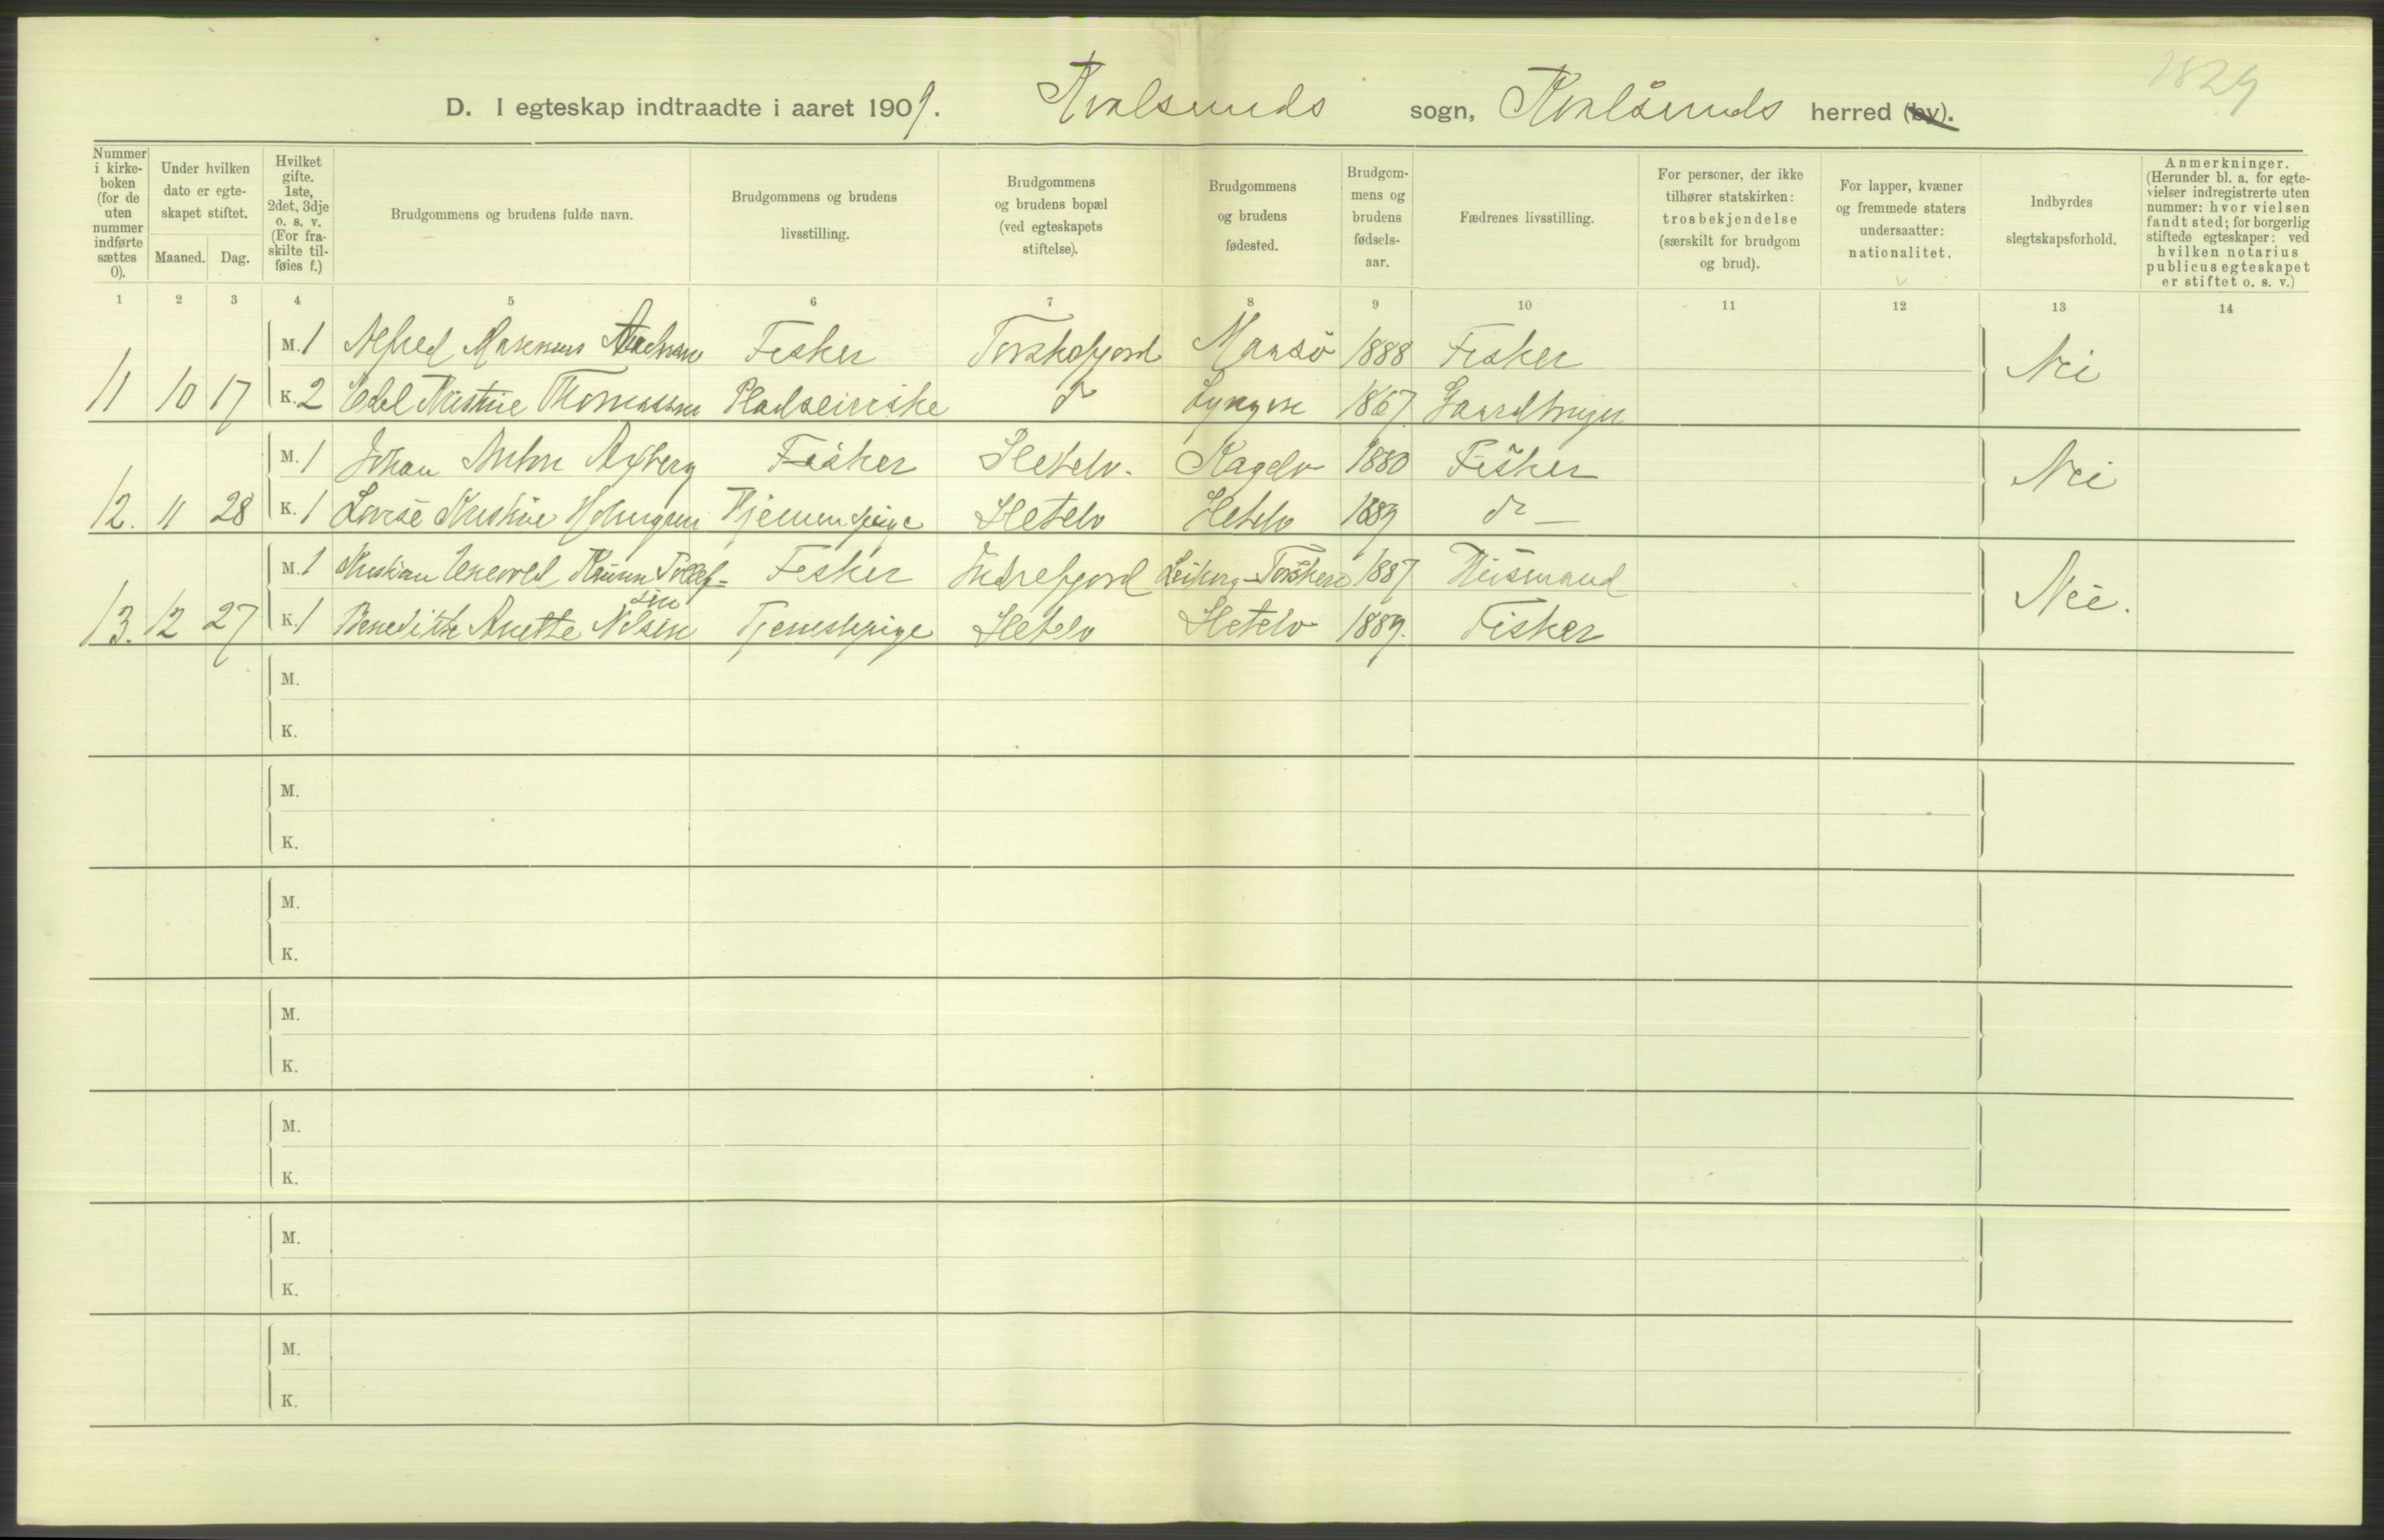 1829
D. I egteskap indtraadte i aaret 1909. Kvalsunds sogn, Kvalsunds herred (by).
Nummer i kirkeboken (for de uten nummer indførte sættes 0).
Under hvilken dato er egteskapet stiftet.
Maaned. Dag.
Hvilket gifte. 1ste, 2det, 3dje o. s. v. (For fraskilte tilføies f.)
Brudgommens og brudens fulde navn.
Brudgommens og brudens livsstilling.
Brudgommens og brudens bopæl (ved egteskapets stiftelse).
Brudgommens og brudens fødested.
Brudgommens og brudens fødselsaar.
Fædrenes livsstilling.
For personer, der ikke tilhører statskirken: trosbekjendelse (særskilt for brudgom og brud).
For lapper, kvæner og fremmede staters undersaatter: nationalitet.
Indbyrdes slegtskapsforhold.
Anmerkninger. (Herunder bl. a. for egtevielser indregistrerte uten nummer: hvor vielsen fandt sted; for borgerlig stiftede egteskaper: ved hvilken notarius publicus egteskapet er stiftet o. s. v.)
1 2 3 4 5 6 7 8 9 10 11 12 13 14
M. 1 Alfred Fisker Torskefjord Maasø 1888 Fisker Nei
11 10 17 K. 2 Edel Kristine Thomassen Pladseierske do Lyngen 1867 Gaardbruger
M. 1 Johan Anton Fisker Sletelv. Kagelv 1880 Fisker Nei
12. 11 28 K. 1 Lovise Kristine Holmgren Hjemmepige Sletelv Sletelv 1889 do —
M. 1 Kristian Fisker Indrefjord 1887 Husmand Nei.
sen
13. 12 27 K. 1 Benedikte Anette Nilsen Tjenestepige Sletelv Sletelv 1889. Fisker
M.
K.
M.
K.
M.
K.
M.
K.
M.
K.
M.
K.
M.
K.